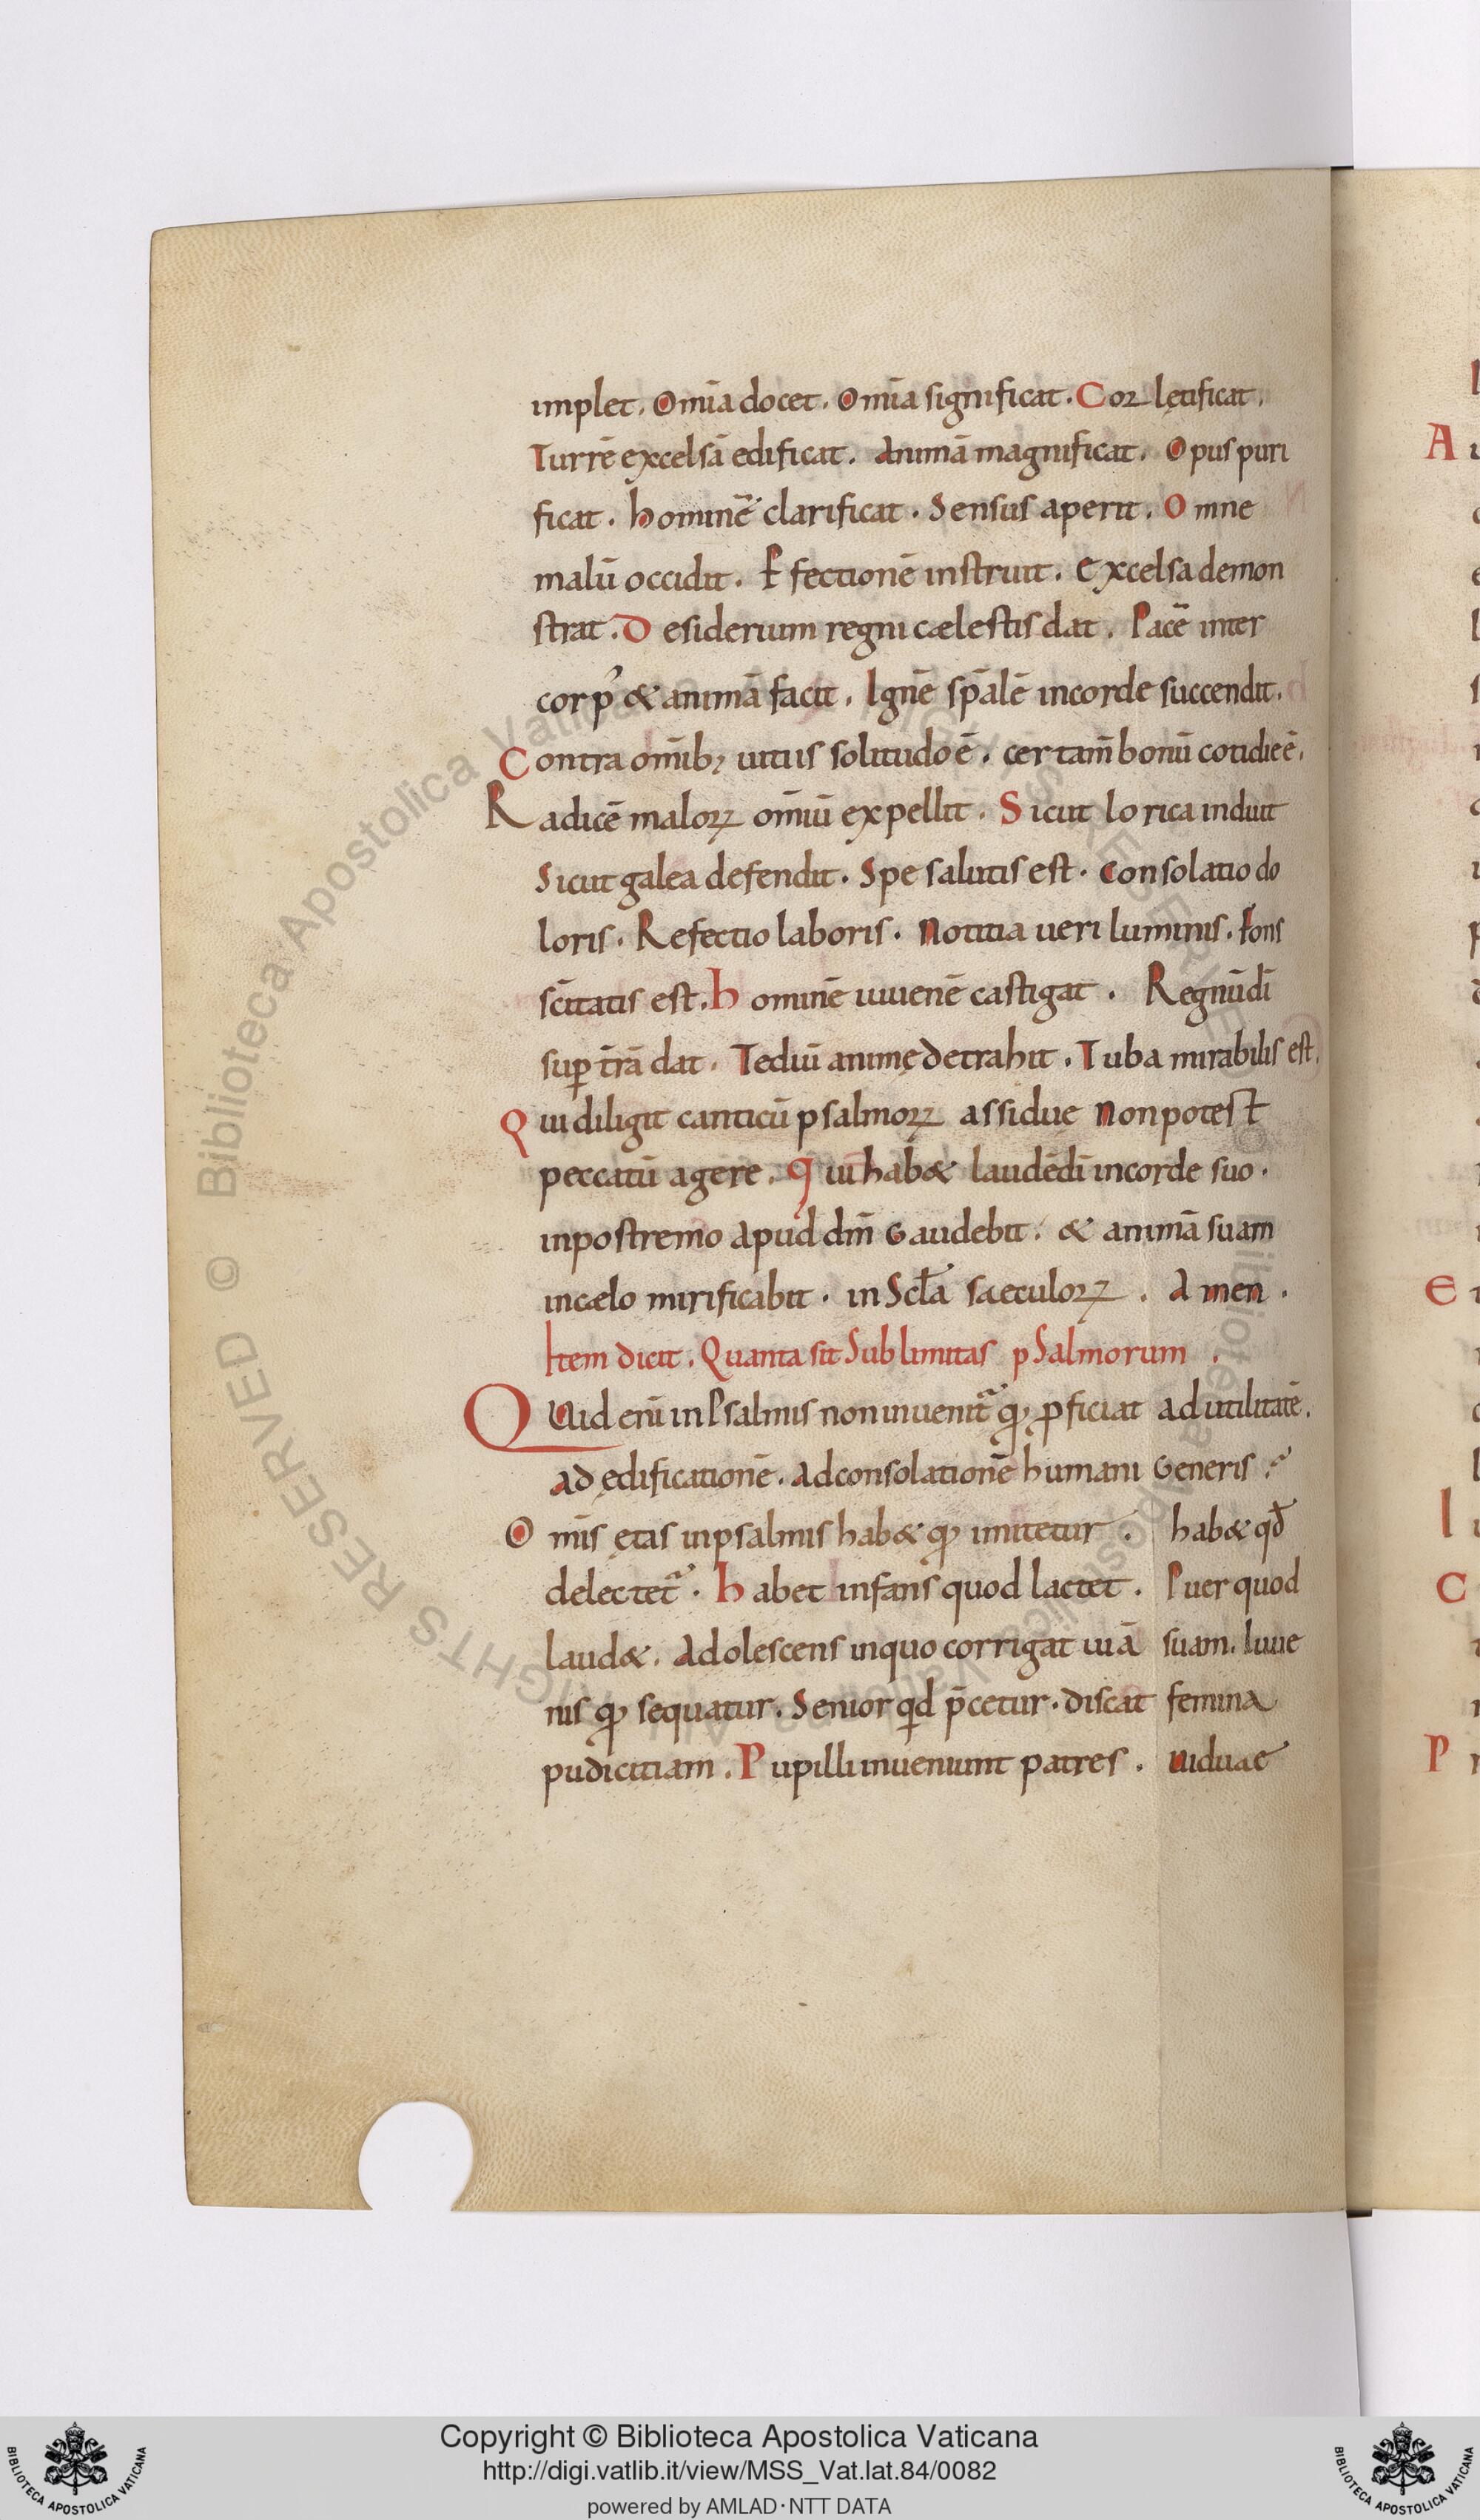 implet. Omīa docet. Omīa significat. Cor lętificat.
Turrē excelsā edificat. Animā magnificat. Opus puri
ficat. hominē clarificat. Sensus aperit. Omne
malū occidit. ꝑfectionē instruit. Excelsa demon
strat. Desiderium regni cælestis dat. Pacē inter
corpꝰ & animā facit. Ignē sp̄alē incorde succendit.
Contra om̄ib; uitiis solitudo ē. certam̄ bonū cotidie ē.
Radicē maloꝝ om̄iū expellit. Sicut lorica induit
Sicut galea defendit. Spe salutis est. Consolatio do
loris. Refectio laboris. Notitia ueri luminis. Fons
sc̄itatis est. hominē iuuenē castigat. Regnū dī
suꝑ t̄rā dat. Tediū animę detrahit. Tuba mirabilis est.
Qui diligit canticū psalmoꝝ assidue non potest
peccatū agere. Qui hab& laudē dī incorde suo.
inpostremo apud dm̄ Gaudebit. & animā suam
incælo mirificabit. in Scl̄a saeculoꝝ. Amen.
Item dicit. Quanta sit Sublimitas pSalmorum.
QUid enī in Psalmis non inuenitᷓ qđ ꝓficiat ad utilitatē.
ad ędificationē. Adconsolationē humani Generis.
Om̄is ętas inpsalmis hab& qđ imitetur. hab& qđ
delectetᷓ. habet infans quod lactet. Puer quod
laud&. Adolescens inquo corrigat uiā suam. Iuue
nis qđ sequatur. Senior qđ p̄cetur. discat femina
pudicitiam. Pupilli inueniunt patres. uiduae
A
E
I
C
P
Biblioteca Apostolica Vaticana ALL RIGHTS RESERVED ©
BIBLIOTECA APOSTOLICA VATICANA
Copyright © Biblioteca Apostolica Vaticana
http://digi.vatlib.it/view/MSS_Vat.lat.84/0082
powered by AMLAD·NTT DATA
BIBLIOTECA APOSTOLICA VATICANA